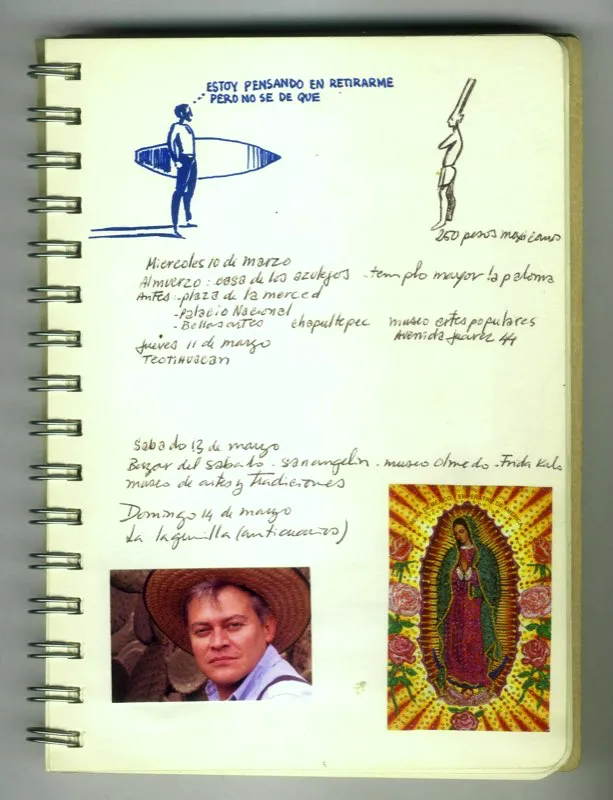 ESTOY PENSANDO EN RETIRARME
PERO NO SE DE QUE
250 pesos mexicanos
Miercoles 10 de marzo
Almuerzo: casa de los azulejos - templo mayor la paloma
Antes: - plaza de la merced
- Palacio Nacional
- Bellas artes chapultepec museo artes populares
Avenida Juarez 44
Jueves 11 de marzo
TEOTIHUACAN
Sabado 13 de marzo
Bazar del sabado - san angelin - museo Olmedo - Frida Kalo
museo de artes y tradiciones
Domingo 14 de marzo
La lagunilla (anticuarios)